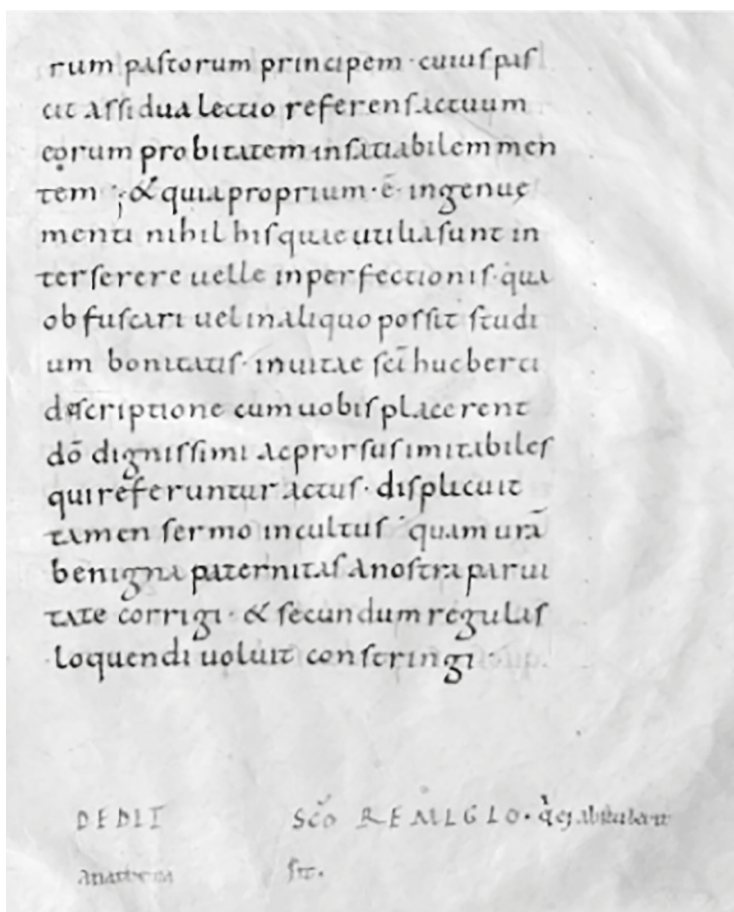 rum pastorum principem · cuius pas
cit assidua lectio referens actuum
eorum probitatem insatiabilem men
tem ; & quia proprium · ē · ingenuę
menti nihil his quae utilia sunt in
terserere uelle inperfectionis · qua
obfuscari uel in aliquo possit studi
um bonitatis · in uitae scī hucberti
descriptione cum uobis placerent
dō dignissimi ac prorsus imitabiles
qui referuntur actus · displicuit
tamen sermo incultus quam urā
benigna paternitas a nostra parui
tate corrigi · & secundum regulas
loquendi uoluit constringi ·
DEDIT SCŌ REMIGIO ·
anathema sit .